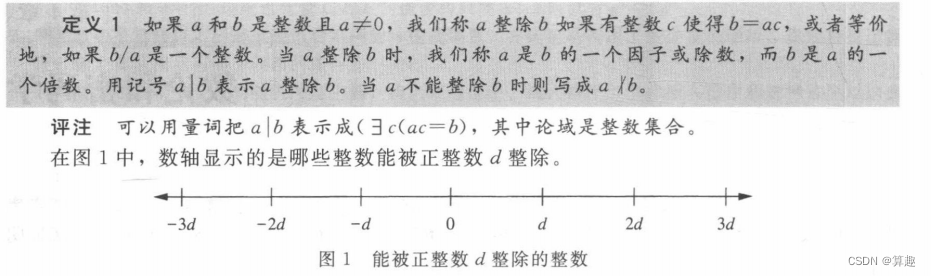 定义 1 如果 a 和 b 是整数且 a≠0，我们称 a 整除 b 如果有整数 c 使得 b=ac，或者等价
地，如果 b/a 是一个整数。当 a 整除 b 时，我们称 a 是 b 的一个因子或除数，而 b 是 a 的一
个倍数。用记号 a|b 表示 a 整除 b。当 a 不能整除 b 时则写成 a∤b。
评注 可以用量词把 a|b 表示成(∃c(ac=b)，其中论域是整数集合。
在图 1 中，数轴显示的是哪些整数能被正整数 d 整除。
-3d -2d -d 0 d 2d 3d
图 1 能被正整数 d 整除的整数
CSDN @算趣